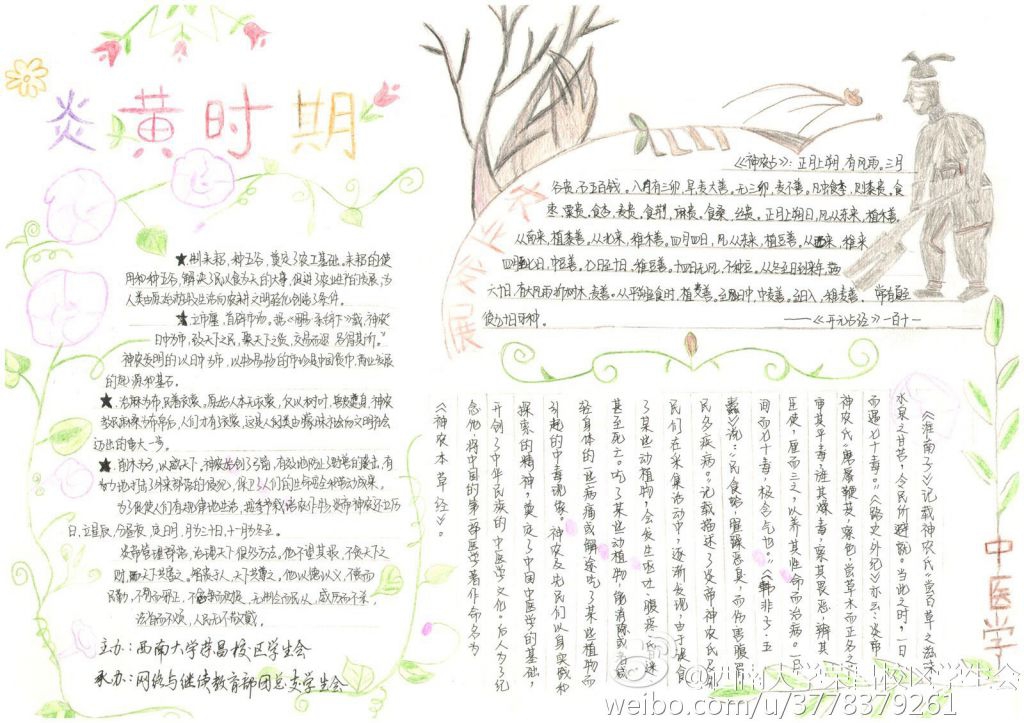 炎黄时期
★制耒耜,种五谷,奠定了农工基础。耒耜的使
用和种五谷,解决了民以食为天的大事,促进了农业生产的发展,为
人类由原始游牧生活向农耕文明转化创造了条件。
★立市廛,首辟市场。
日中为市,致天下之民,聚天下之货,交易而退,各得其所。”
神农发明的以日中为市,以物易物的市场是中国货币,商业发展
的起源和基石。
★治麻为布,民着衣裳。原始人本无衣裳,仅以树叶、兽皮遮身,神农
教民麻桑为布帛后,人们才有衣裳,这是人类由蒙昧社会向文明社会
迈出的重大一步。
★削木为弓,以威天下。神农始创了弓箭,有效地防止了野兽的袭击,有
力地打击了外来部落的侵犯,保卫了人们的生命安全和劳动成果。
为了促使人们有规律地生活,
日,立星辰,分昼夜,定日月,月为三十日,十一月为冬至。
炎帝管理部落,治理天下很有方法。他不望其报,不贪天下之
财,而天下共富之。智贵于人,天下共尊之。他以德以义,不赏而
民勤,不罚而邪正,不忿争而财足,无制令而民从,威厉而不杀,
法省而不烦,人民无不敬戴。
主办:西南大学荣昌校区学生会
承办:网络与继续教育部团总支学生会
农业发展
《神农占》:正月上朔,有风雨。三月
谷贵,石五百钱。八月有三卯,旱麦大善。无三卯,麦不善。凡虫食李,则黍贵。食
枣,粟贵,食杏,麦贵。食荆,麻贵。食桑,丝贵。正月上朔日,风从东来,植禾善。
从南来,植黍善。从北来,稚禾善。四月四日,风从东来,植豆善。从西来,稚
六十日,有大风雨折树木,麦善。
——《开元占经》一百十一
中医学
《淮南子》记载神农氏“尝百草之滋味
水泉之甘苦,令民所避就。当此之时,一日
而遇七十毒。”《路史外纪》亦云:炎帝
神农氏“磨蜃鞭茇,察色尝草木而正名之
审其平毒,旌其燥害,察其畏恶,辨其
臣使,厘而三之,以养其性命而治病。一日
间而七十毒,极含气也。”《韩非子·五
蠹》说:“民食果蓏蚌蛤,腥臊恶臭,而伤害腹胃,
民多疾病。”记载描述了炎帝神农氏
民们在采集活动中,逐渐发现,由于误食
了某些动植物,会发生呕吐、腹疼、昏迷
甚至死亡。吃了某些动植物,能消除或减
轻身体的一些病痛或解除吃了某些植物而
引起的中毒现象。神农及先民们以身实践和
探索的精神,奠定了中国中医学的基础,
开创了中华民族的中医学文化。后人为了纪
念他,将中国的第一部医学著作命名为
《神农本草经》。
@西南大学荣昌校区学生会
weibo.com/u/3778379261